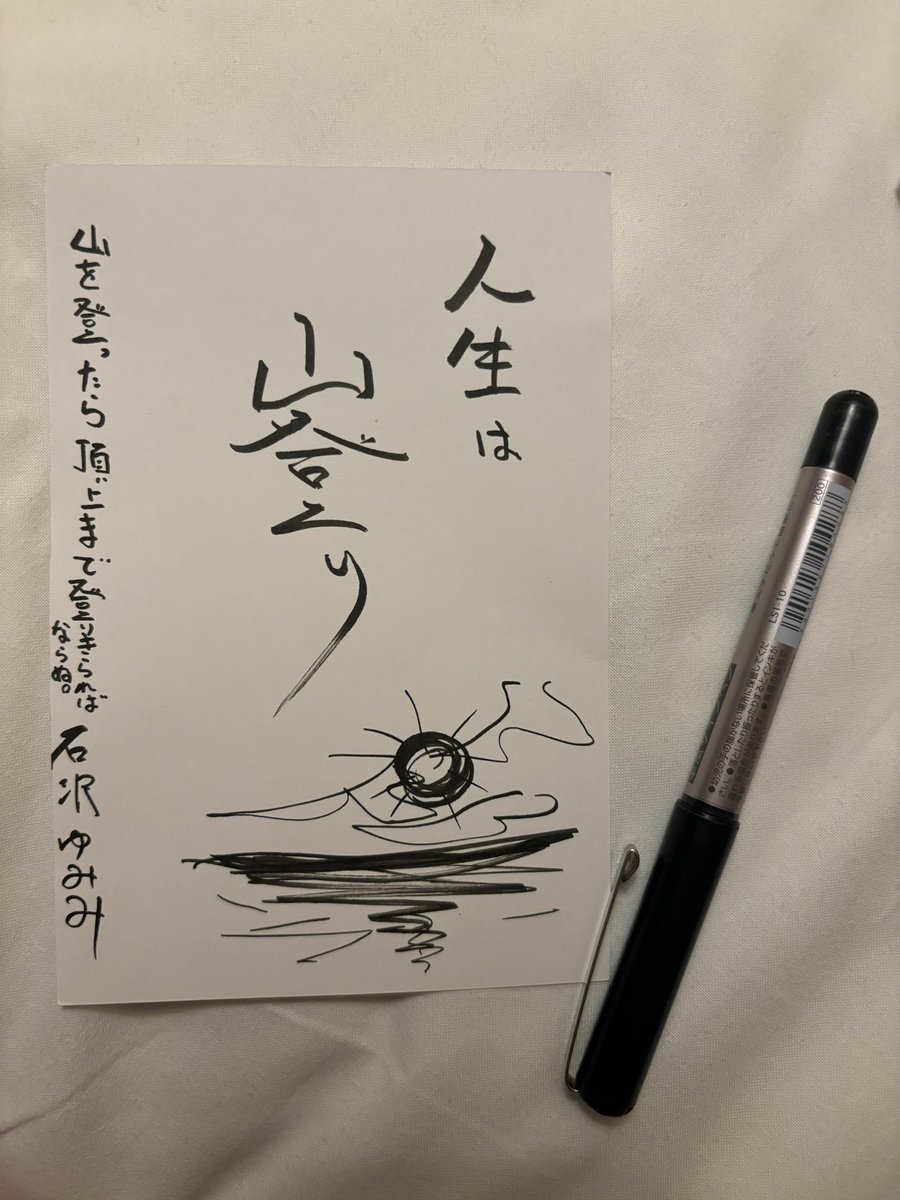 人生は
山登り
山を登ったら頂上まで登きられば
ならぬ。
石沢ゆみみ
[200]
LS1-10